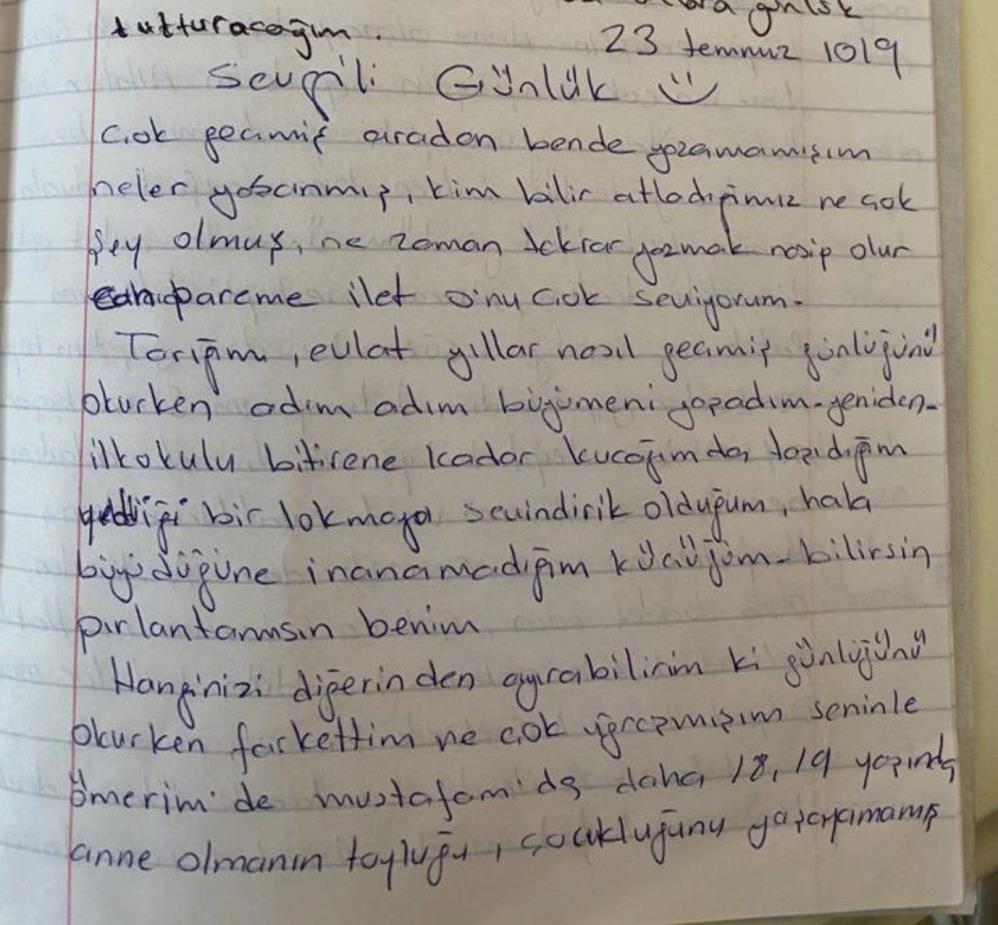 günlük
tutturacağım.
23 temmuz 1019
Sevgili Günlük
Çok geçmiş aradan bende yazamamışım
neler yaşanmış, kim bilir atladığımız ne çok
şey olmuş, ne zaman tekrar yazmak nasip olur
pareme ilet onu çok seviyorum.
Tarığım, evlat yıllar nasıl geçmiş günlüğünü
okurken adım adım büyümeni yaşadım-yeniden-
ilkokulu bitirene kadar kucağımda taşıdığım
yediği bir lokmaya sevindirik olduğum, hala
büyüdüğüne inanamadığım küçüğüm-bilirsin
pırlantamsın benim
Hanginizi diğerinden ayırabilirim ki günlüğünü
okurken farkettim ne çok uğraşmışım seninle
ömerim'de mustafam'da daha 18, 19 yaşında
anne olmanın toyluğu, çocukluğunu yaşayamamış